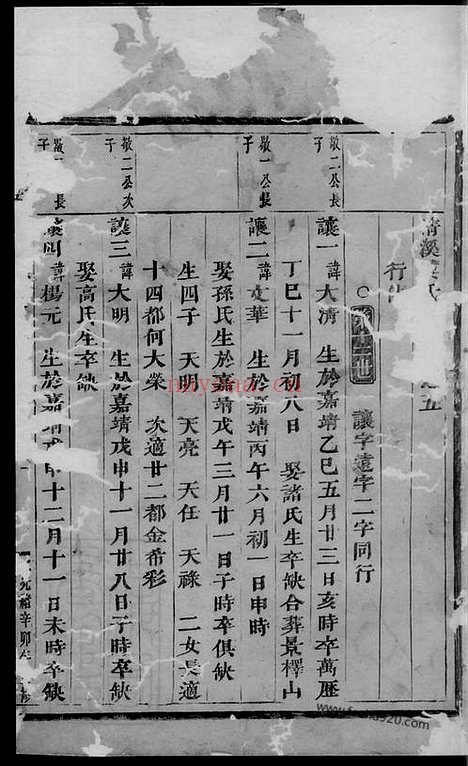 清溪 氏 五
行
讓字遠字二字同行
敬二公長子
讓一諱大清 生於嘉靖乙巳五月廿三日亥時卒萬歷
丁巳十一月初八日 娶諸氏生卒缺合葬景檡山
敬一公長子
讓二諱文華 生於嘉靖丙午六月初一日申時
娶孫氏生於嘉靖戊午三月廿一日子時卒俱缺
生四子 天明 天亮 天任 天祿 二女長適
十四都何大榮 次適廿二都金希彩
敬二公次子
讓三諱大明 生於嘉靖戊申十一月廿八日子時卒缺
娶高氏生卒缺
敬一 長子
讓四諱楊元 生於嘉靖戊申十二月十一日未時卒缺
光緒辛卯年 修